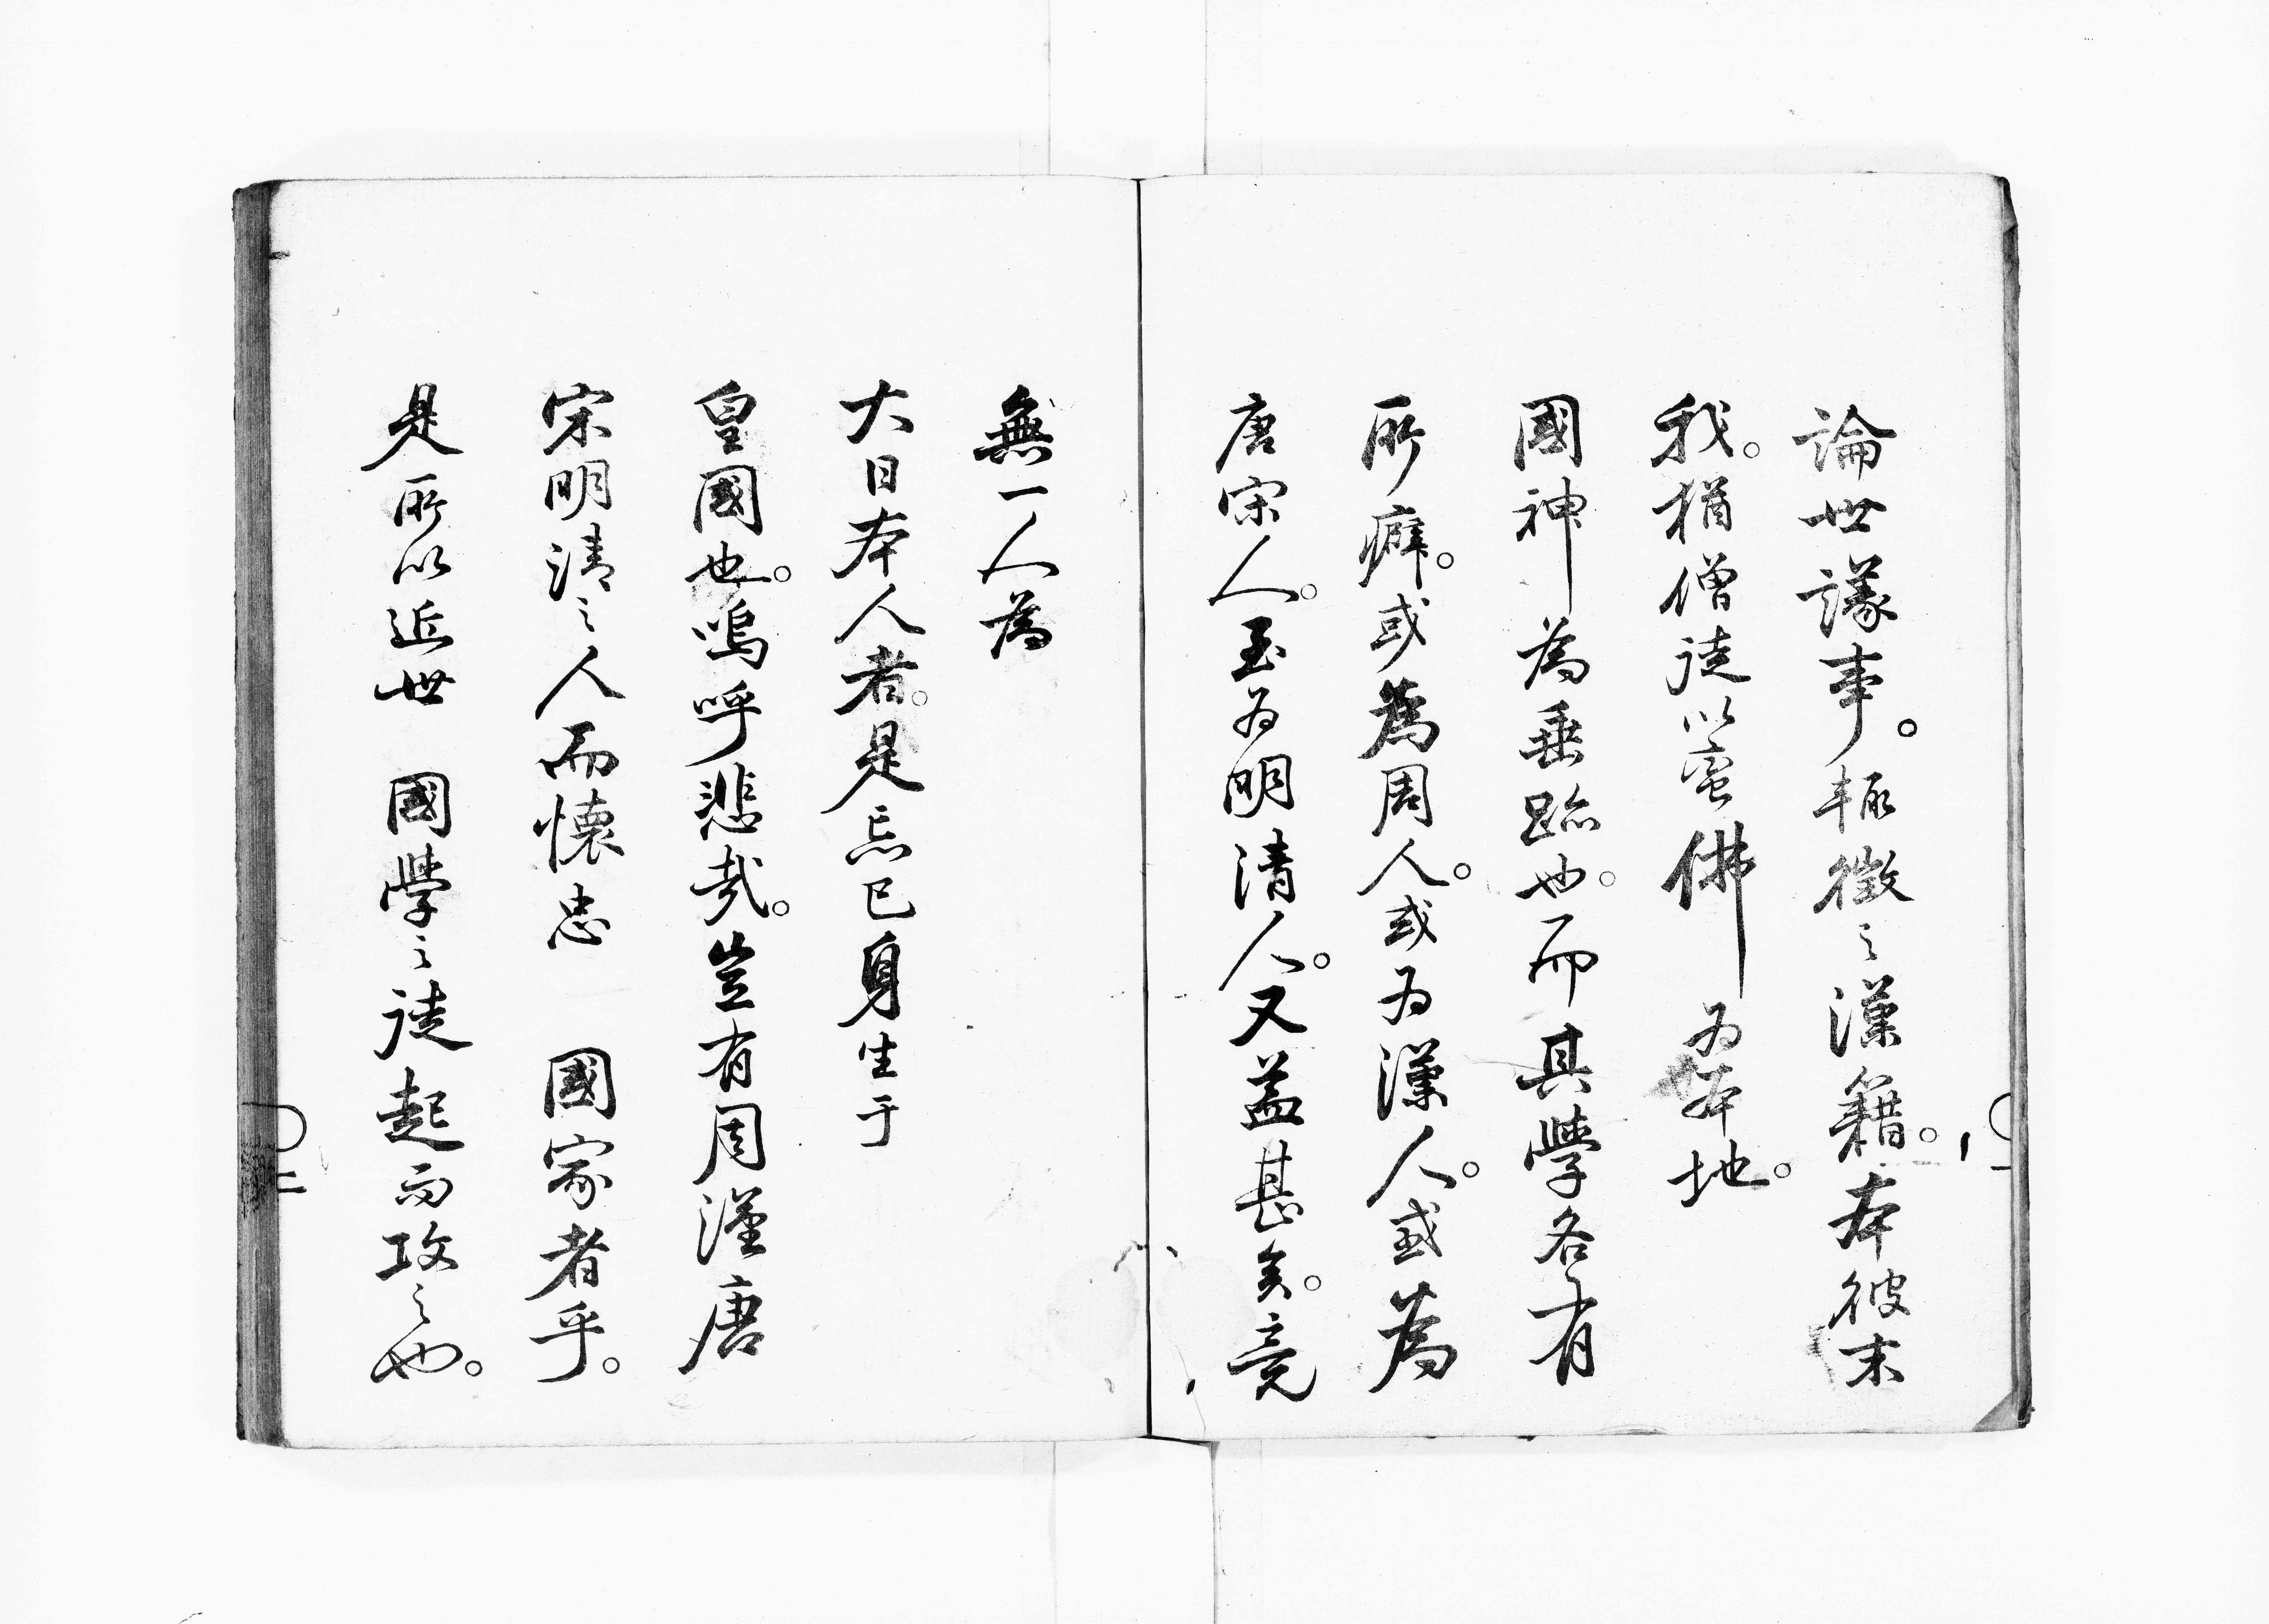 論世議事。輙徴之漢籍。本彼末
我。猶僧徒以蛮佛為本地。
國神為垂跡也。而其學各有
所癖。或為周人。或為漢人。或為
唐宋人。至為明清人。又益甚矣。竟
無一人為
大日本人者。是忘己身生于
皇國也。嗚呼悲哉。豈有周漢唐
宋明清之人而懐忠　國家者乎。
是所以近世　國學之徒起而攻之也。